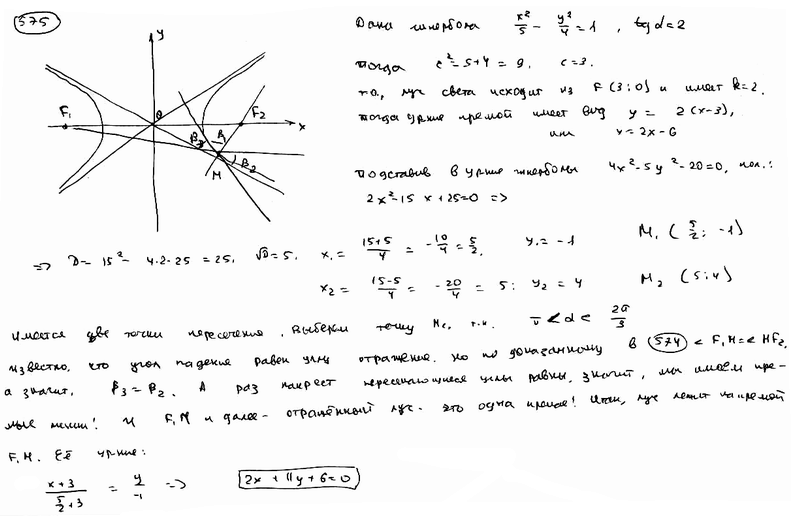 575
Дана гипербола x²/5 - y²/4 = 1, tg α = 2
тогда c² = 5+4 = 9, c = 3.
т.о, луч света исходит из F (3;0) и имеет k=2.
тогда ур-ние прямой имеет вид y = 2(x-3),
или y = 2x-6
подставив в ур-ние гиперболы 4x²-5y²-20=0, пол.:
2x²-15x+25=0 =>
y
x
F₁
0
F₂
β₃
β₁
β₂
M
=> D = 15² - 4·2·25 = 25, √D = 5. x₁ = (15+5)/4 = -10/4 = 5/2, y₁ = -1 M₁ (5/2; -1)
x₂ = (15-5)/4 = -20/4 = 5; y₂ = 4 M₂ (5;4)
имеется две точки пересечения, выберем точку M₁, т.к. π < α < 3π/2
известно, что угол падения равен углу отражения. но по доказанному в 574 < F₁M = < MF₂,
а значит, β₃ = β₂. А раз накрест пересекающиеся углы равны, значит, мы имеем пря-
мые линии! и F₁M и далее - отражённый луч - это одна прямая! Итак, луч лежит на прямой
F₁M. Её ур-ние:
(x+3)/(5/2+3) = y/-1 => 2x + 11y + 6 = 0